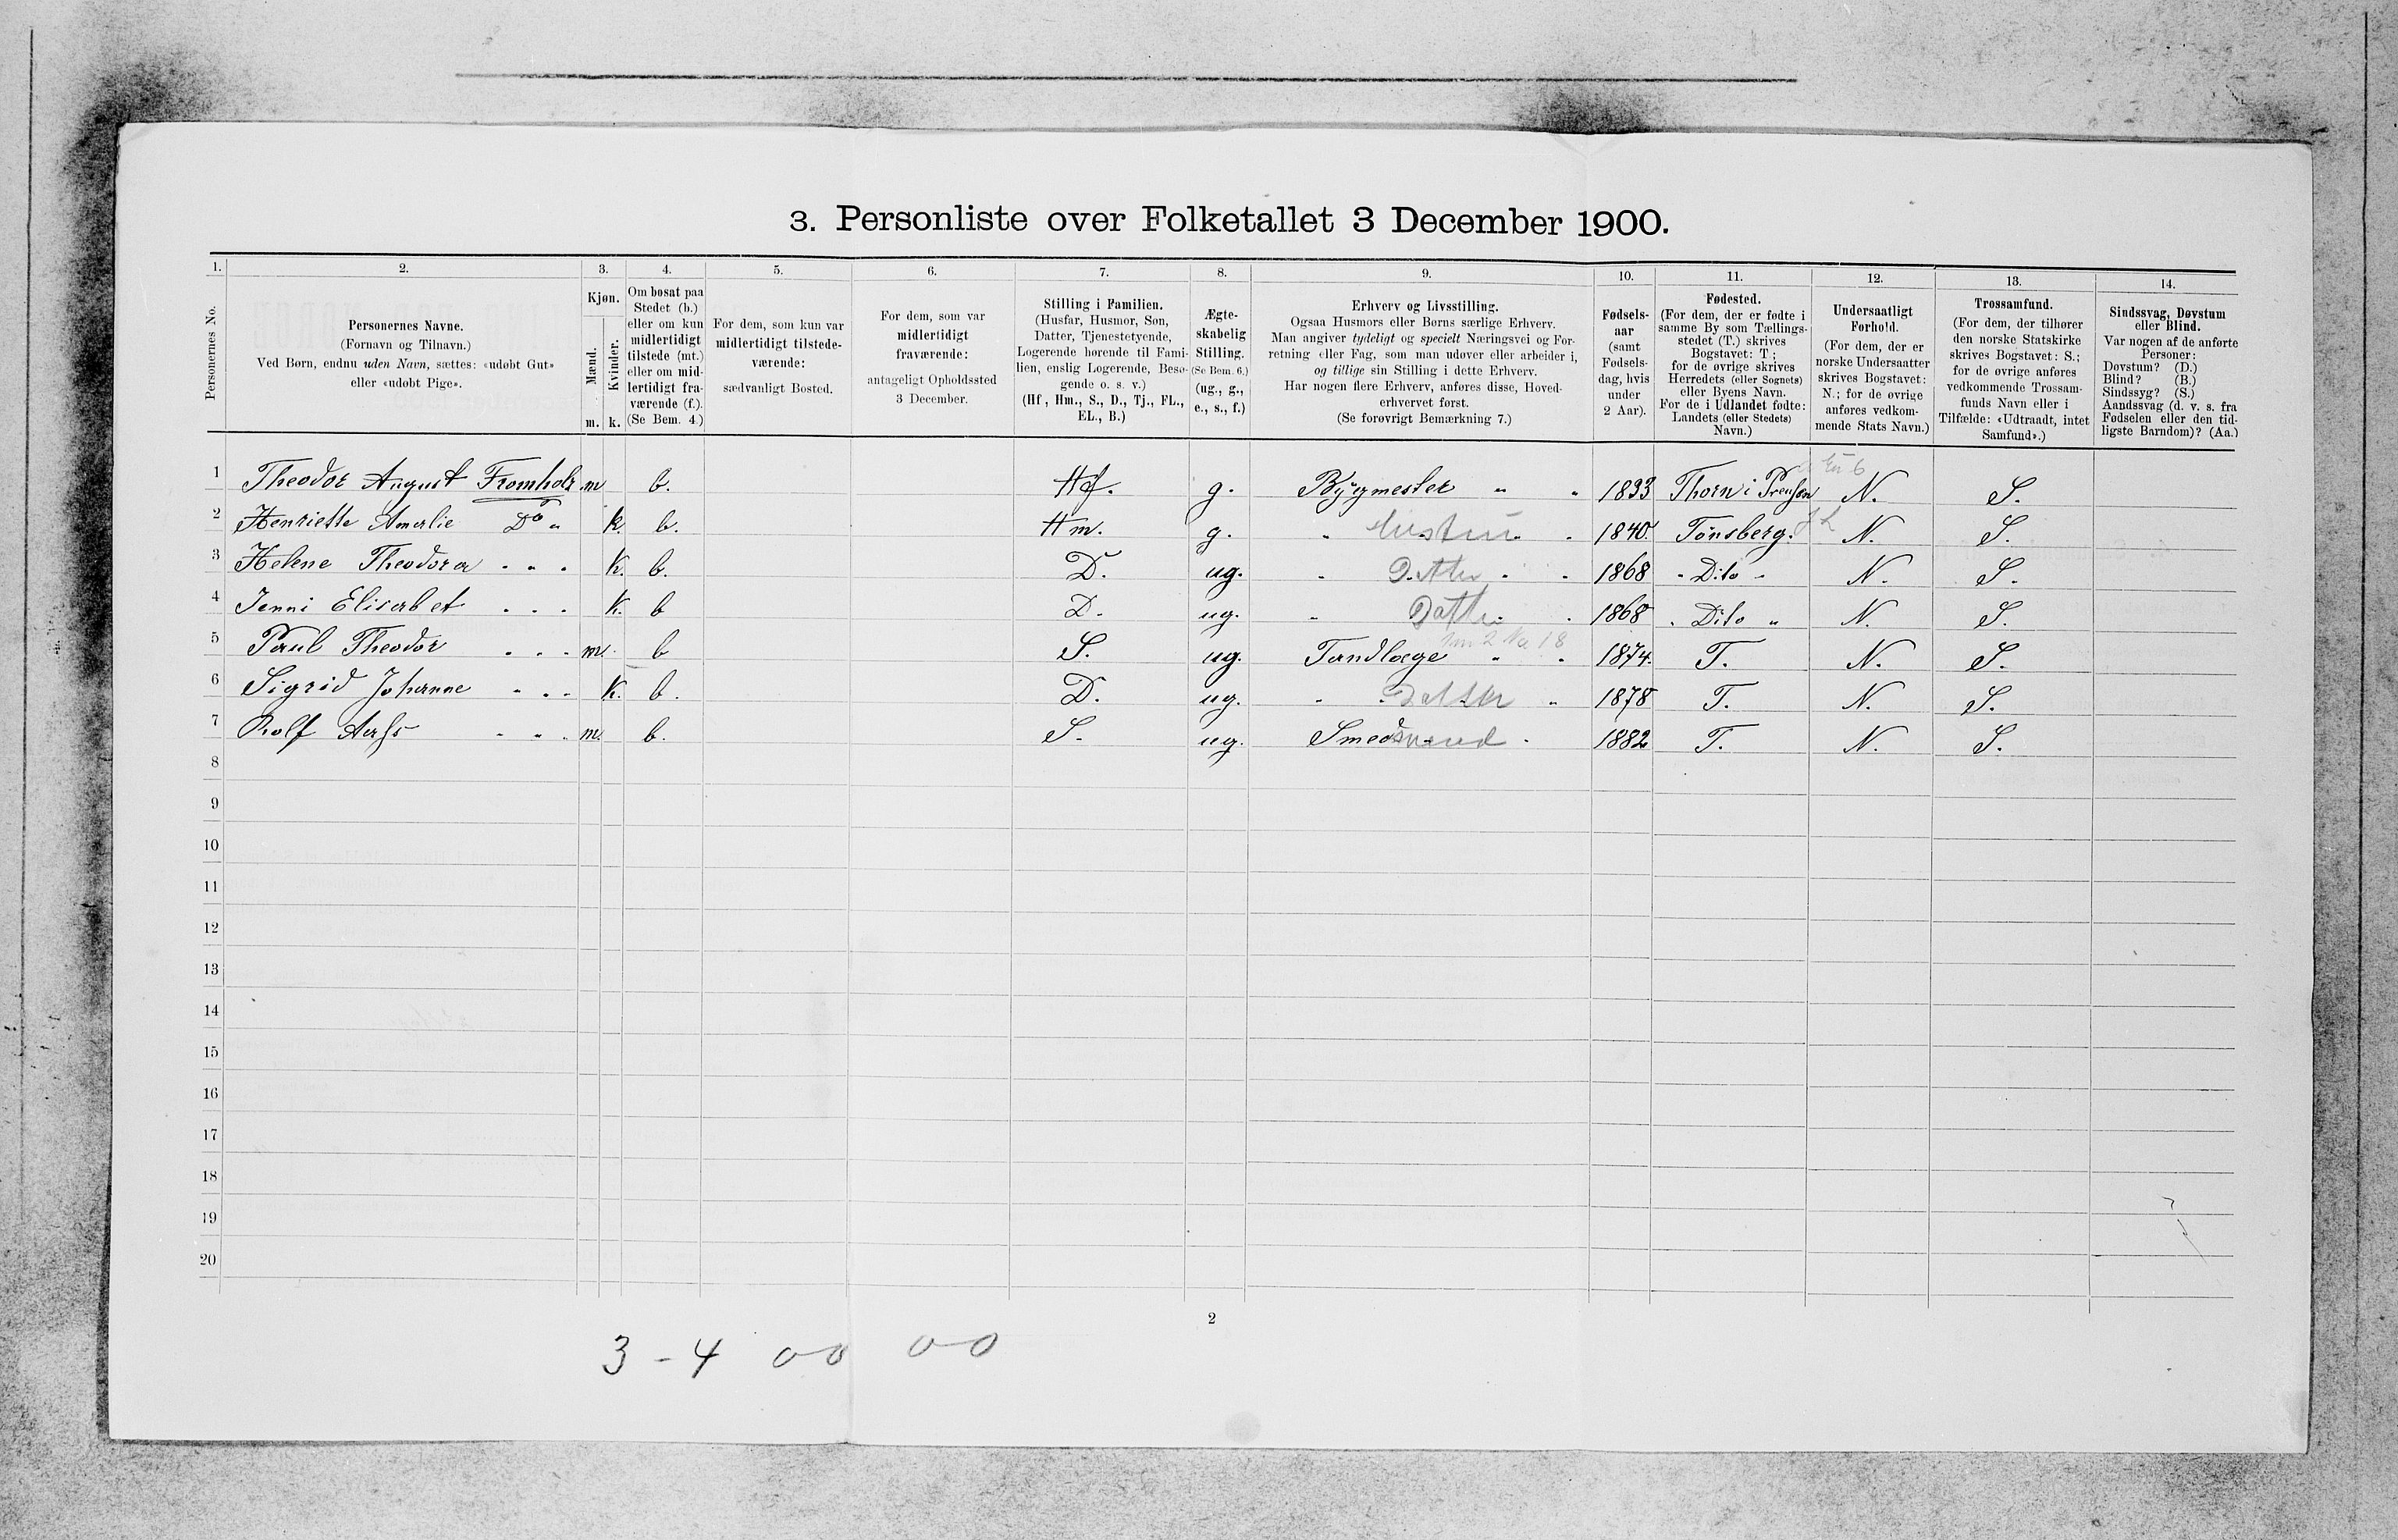 3. Personliste over Folketallet 3 December 1900.
1. 2. 3. 4. 5. 6. 7. 8. 9. 10. 11. 12. 13. 14.
Personernes No.
Personernes Navne.
(Fornavn og Tilnavn.)
Ved Børn, endnu uden Navn, sættes: «udøbt Gut»
eller «udøbt Pige».
Kjøn.
Mænd.
Kvinder.
m. k.
Om bosat paa
Stedet (b.)
eller om kun
midlertidigt
tilstede (mt.)
eller om mid-
lertidigt fra-
værende (f.).
(Se Bem. 4.)
For dem, som kun var
midlertidigt tilstede-
værende:
sædvanligt Bosted.
For dem, som var
midlertidigt
fraværende:
antageligt Opholdssted
3 December.
Stilling i Familien.
(Husfar, Husmor, Søn,
Datter, Tjenestetyende,
Logerende hørende til Fami-
lien, enslig Logerende, Besø-
gende o. s. v.)
(Hf, Hm., S., D., Tj., FL.,
EL., B.)
Ægte-
skabelig
Stilling.
(Se Bem. 6.)
(ug., g.,
e., s., f.)
Erhverv og Livsstilling.
Ogsaa Husmors eller Børns særlige Erhverv.
Man angiver tydeligt og specielt Næringsvei og For-
retning eller Fag, som man udøver eller arbeider i,
og tillige sin Stilling i dette Erhverv.
Har nogen flere Erhverv, anføres disse, Hoved-
erhvervet først.
(Se forøvrigt Bemærkning 7.)
Fødsels-
aar
(samt
Fødsels-
dag, hvis
under
2 Aar).
Fødested.
(For dem, der er fødte i
samme By som Tællings-
stedet (T.) skrives
Bogstavet: T.;
for de øvrige skrives
Herredets (eller Sognets)
eller Byens Navn.
For de i Udlandet fødte:
Landets (eller Stedets)
Navn.)
Undersaatligt
Forhold.
(For dem, der er
norske Undersaatter
skrives Bogstavet:
N.; for de øvrige
anføres vedkom-
mende Stats Navn.)
Trossamfund.
(For dem, der tilhører
den norske Statskirke
skrives Bogstavet: S.;
for de øvrige anføres
vedkommende Trossam-
funds Navn eller i
Tilfælde: «Udtraadt, intet
Samfund».)
Sindssvag, Døvstum
eller Blind.
Var nogen af de anførte
Personer:
Døvstum? (D.)
Blind? (B.)
Sindssyg? (S.)
Aandssvag (d. v. s. fra
Fødselen eller den tid-
ligste Barndom)? (Aa.)
1 Theodor August Fromholz m b. Hf. g. Bygmester " " 1833 Thorn i Preusen N. S.
2 Henriette Amalie Do " k. b. Hm. g. " Hustru " 1840. Tønsberg. N. S.
3 Helene Theodora " " " k. b. D. ug. " Datter " " 1868 " Dito " N. S.
4 Jenni Elisabet " " " k. b D. ug. " Datter " 1868 " Dito " N. S.
5 Paul Theodor " " " m. b S. ug. Tandlæge " " 1874. T. N. S.
6 Sigrid Johanne " " " k. b. D. ug. " Datter " 1878 T. N. S.
7 Rolf " " " m. b. S. ug. Smedsvend " 1882 T. N. S.
8
9
10
11
12
13
14
15
16
17
18
19
20
2
3 - 4 00 00